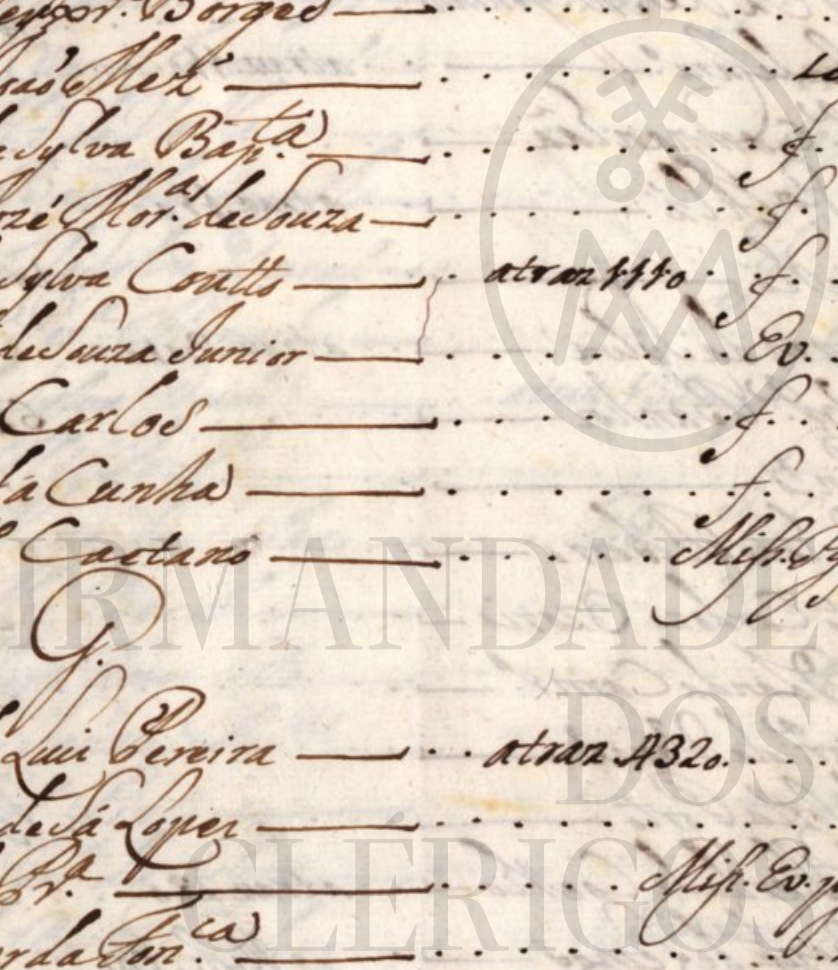 Borges
Mez.
Sylva Bap.ta f.
Mor.a de Souza f.
Sylva Coutto atraz 1110 f.
de Souza Junior Ev.
Carlos f.
Cunha f.
Caetano Miss.
G.
Luis Pereira atraz 4320
de Sá Lopez
Pr.a Miss. Ev.
Fon.ca
IRMANDADE
DOS
CLÉRIGOS